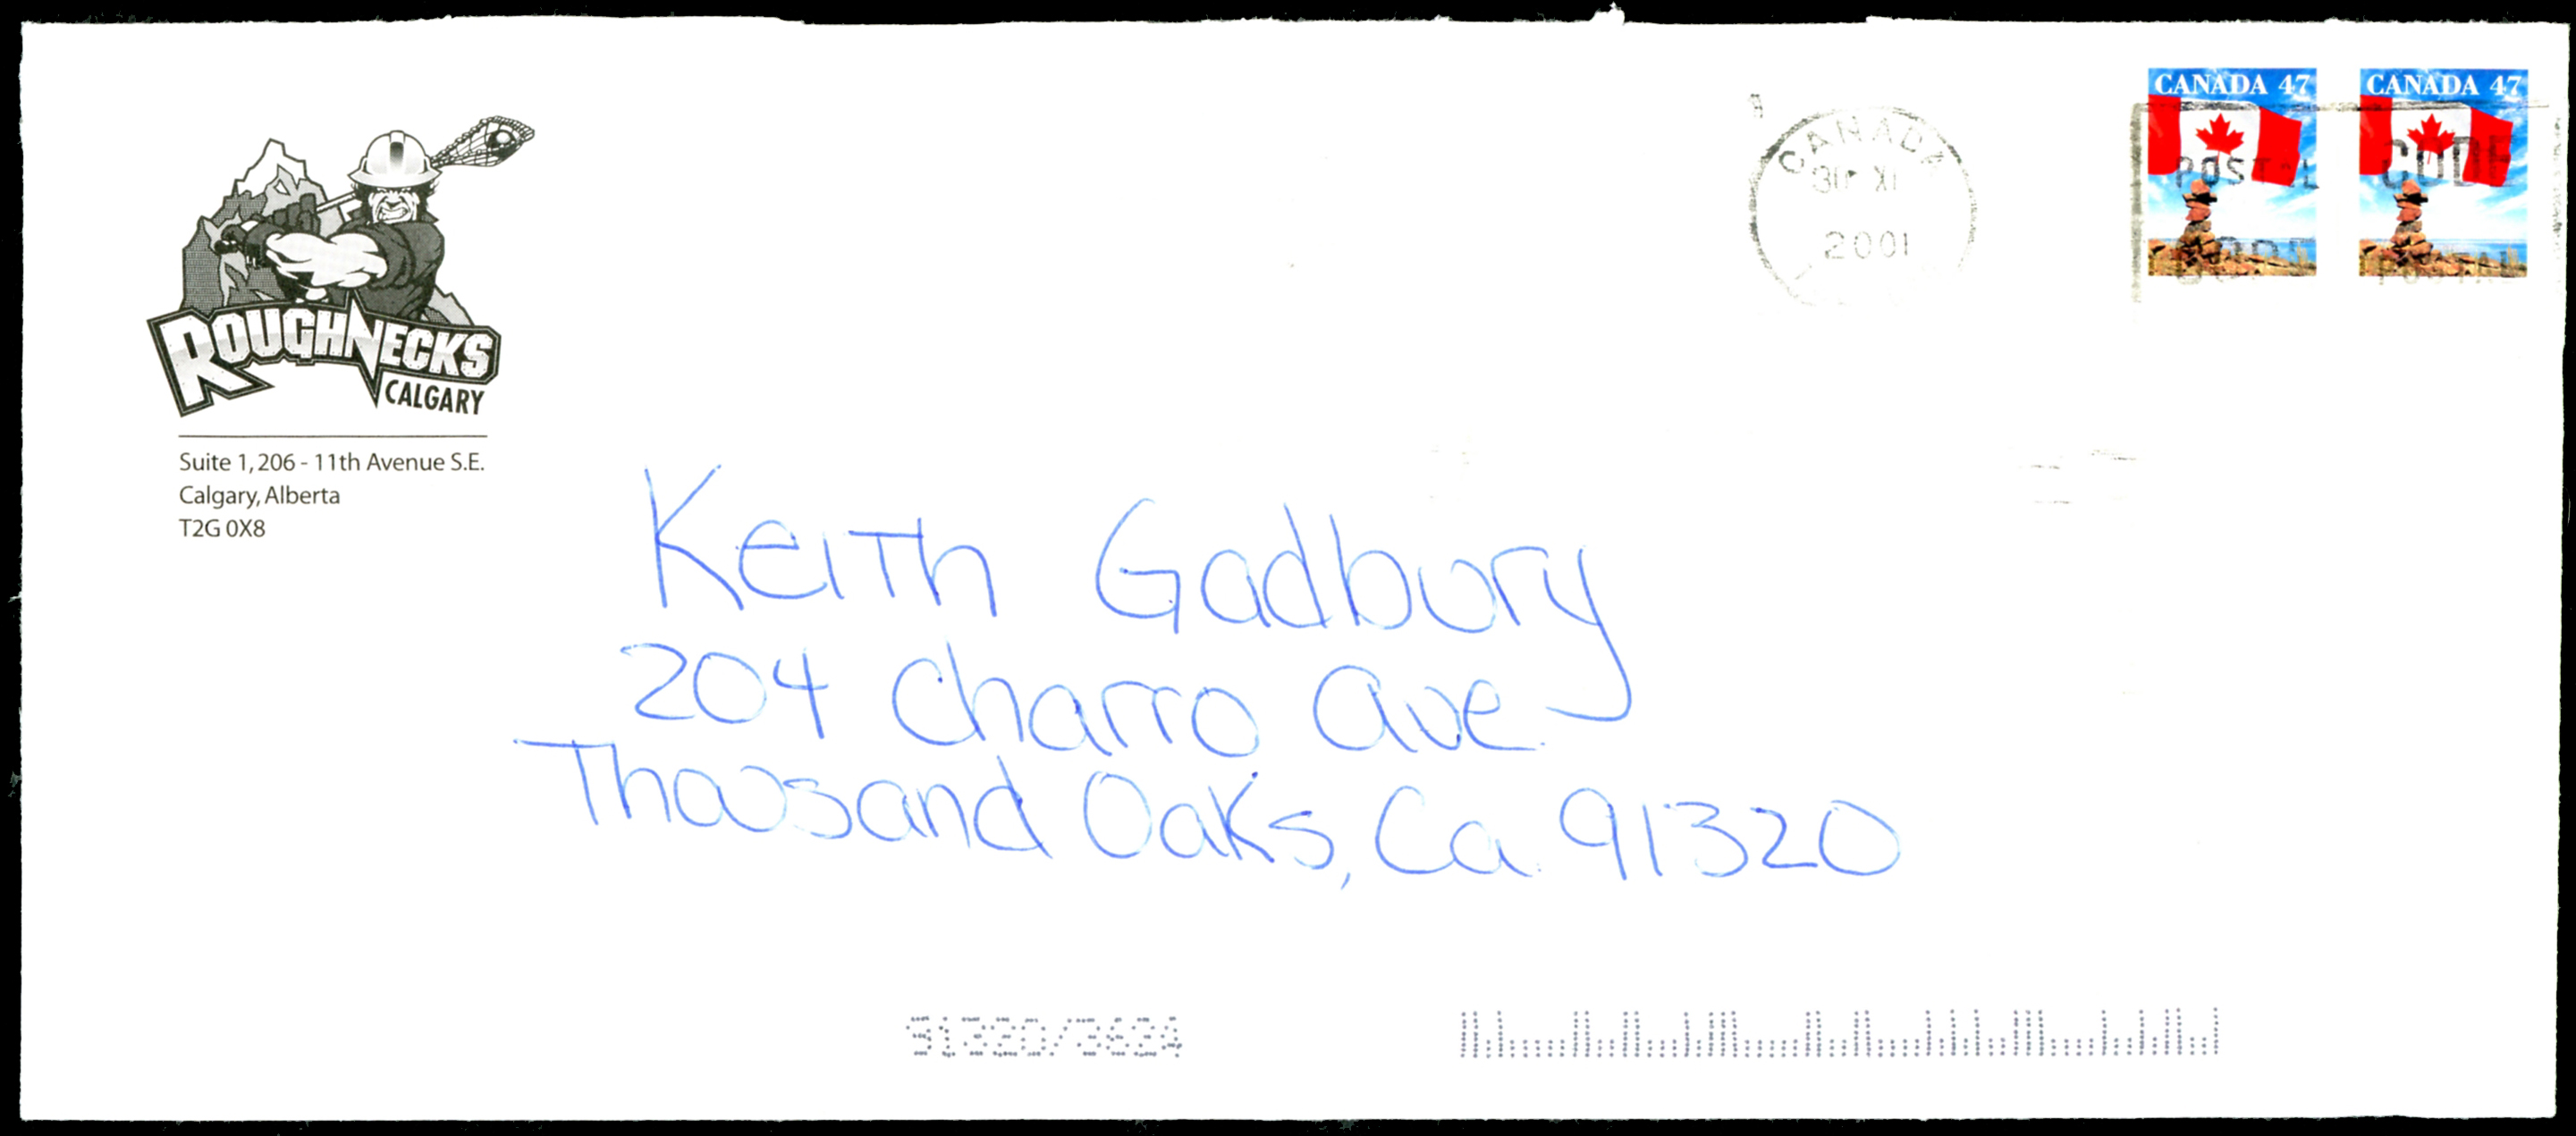 ROUGHNECKS
CALGARY
Suite 1, 206 - 11th Avenue S.E.
Calgary, Alberta
T2G 0X8
CANADA
2001
CANADA 47
CANADA 47
POSTAL CODE
Keith Gadbury
204 Charro Ave.
Thousand Oaks, Ca. 91320